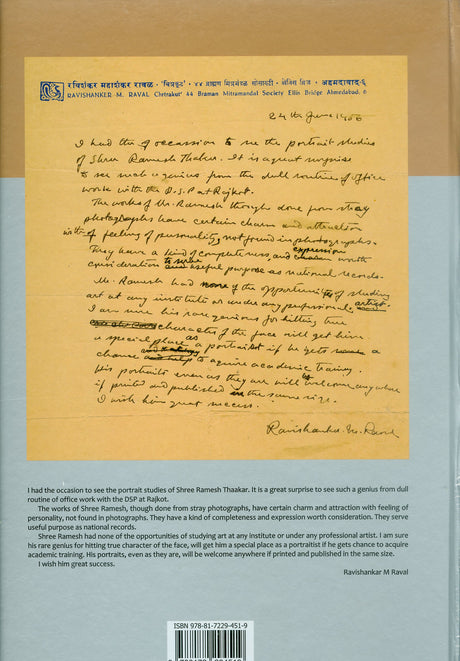 रविशंकर महाशंकर रावळ, 'चित्रकूट' • ४४ ब्राह्मण मित्रमंडळ सोसायटी • एलिस ब्रिज • अहमदाबाद-६
RAVISHANKER M. RAVAL Chitrakut' 44 Braman Mitramandal Society Ellis Bridge Ahmedabad. 6
24th June 1956
I had the occassion to see the portrait studies
of Shree Ramesh Thaker. It is a great surprise
to see such a genius from the dull routine of office
work with the D.S.P at Rajkot.
The works of Mr. Ramesh though done from stray
photographs have certain charm and attraction
with feeling of personality, not found in photographs.
They have a kind of completeness and expression worth
consideration to serve useful purpose as national records.
Mr. Ramesh had none of the opportunities of studying
art at any institute or under any professional artist.
I am sure his rare genious for hitting true
character of the face will get him
a special place as a portraitist if he gets a
chance to aquire academic training.
His portraits even as they are will be welcome anywhere
if printed and published in the same size.
I wish him great success.
Ravishanker M. Raval
I had the occasion to see the portrait studies of Shree Ramesh Thaakar. It is a great surprise to see such a genius from dull
routine of office work with the DSP at Rajkot.
The works of Shree Ramesh, though done from stray photographs, have certain charm and attraction with feeling of
personality, not found in photographs. They have a kind of completeness and expression worth consideration. They serve
useful purpose as national records.
Shree Ramesh had none of the opportunities of studying art at any institute or under any professional artist. I am sure
his rare genius for hitting true character of the face, will get him a special place as a portraitist if he gets chance to acquire
academic training. His portraits, even as they are, will be welcome anywhere if printed and published in the same size.
I wish him great success.
Ravishankar M Raval
ISBN 978-81-7229-451-9